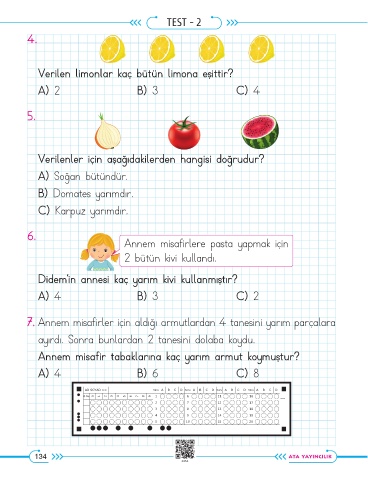 TEST - 2
4.
Verilen limonlar kaç bütün limona eşittir?
A) 2 B) 3 C) 4
5.
Verilenler için aşağıdakilerden hangisi doğrudur?
A) Soğan bütündür.
B) Domates yarımdır.
C) Karpuz yarımdır.
6.
Annem misafirlere pasta yapmak için
2 bütün kivi kullandı.
Didem'in annesi kaç yarım kivi kullanmıştır?
A) 4 B) 3 C) 2
7. Annem misafirler için aldığı armutlardan 4 tanesini yarım parçalara
ayırdı. Sonra bunlardan 2 tanesini dolaba koydu.
Annem misafir tabaklarına kaç yarım armut koymuştur?
A) 4 B) 6 C) 8
134
ATA YAYINCILIK